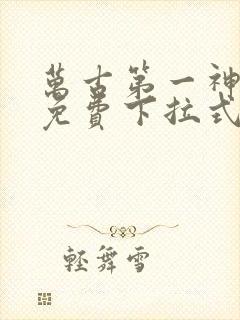 萬古第一神
免費下拉式
輕舞雪